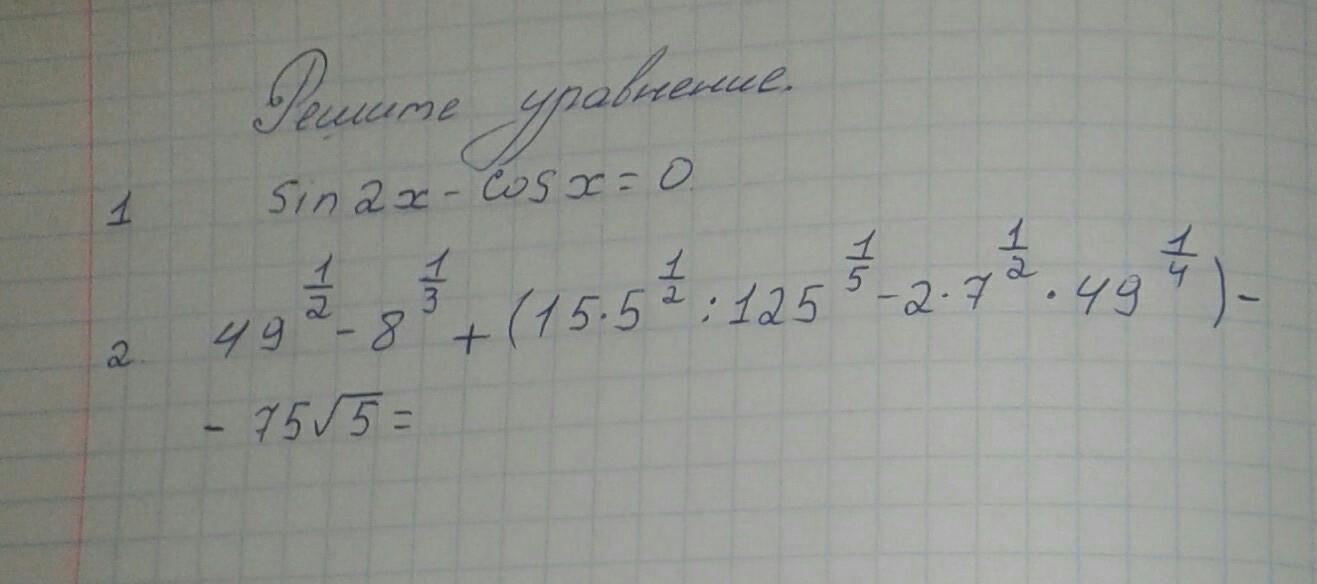 Решите уравнение.
1 sin2x - cosx = 0
2. 49^{1/2} - 8^{1/3} + (15·5^{1/2} : 125^{1/5} - 2·7^{1/2} · 49^{1/4}) -
- 75√5 =